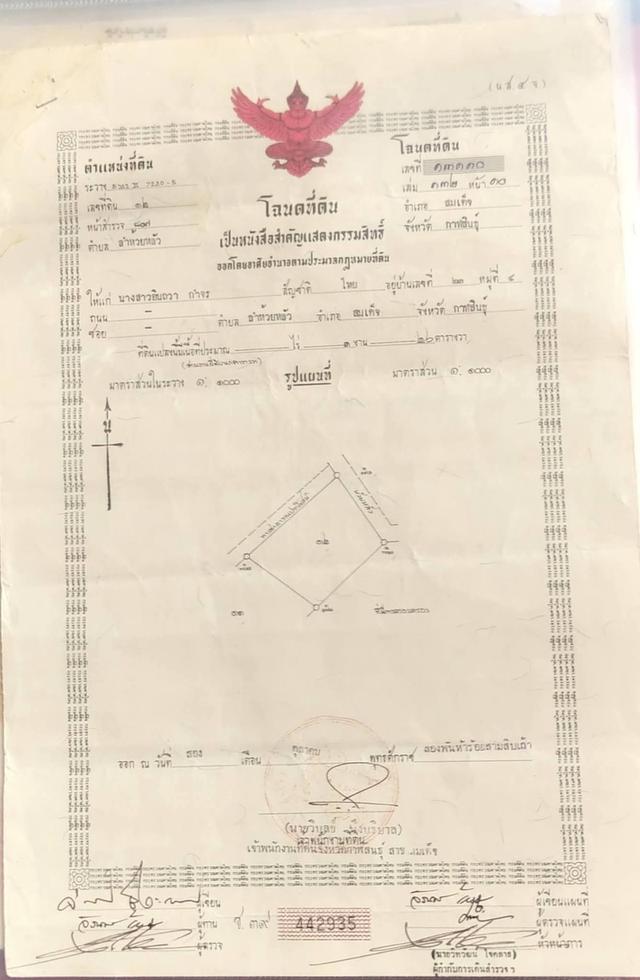 (น.ส. ๔ จ)
ตำแหน่งที่ดิน
ระวาง
เลขที่ดิน ๓๒
หน้าสำรวจ ๘๓๗
ตำบล ลำห้วยหลัว
โฉนดที่ดิน
เลขที่ ๑๓๑๑๐
เล่ม ๑๓๒ หน้า ๑๐
อำเภอ สมเด็จ
จังหวัด กาฬสินธุ์
โฉนดที่ดิน
เป็นหนังสือสำคัญแสดงกรรมสิทธิ์
ออกโดยอาศัยอำนาจตามประมวลกฎหมายที่ดิน
ให้แก่ นางสาวอินถวา กำจร สัญชาติ ไทย อยู่บ้านเลขที่ ๒๓ หมู่ที่ ๔
ถนน – ตำบล ลำห้วยหลัว อำเภอ สมเด็จ จังหวัด กาฬสินธุ์
ซอย –
ที่ดินแปลงนี้มีเนื้อที่ประมาณ ไร่ ๑ งาน ๒๖ ตารางวา
มาตราส่วนในระวาง ๑: ๑๐๐๐
รูปแผนที่
มาตราส่วน ๑: ๑๐๐๐
น
๓๒
ออก ณ วันที่ สอง เดือน ตุลาคม พุทธศักราช สองพันห้าร้อยสามสิบเก้า
เจ้าพนักงานที่ดิน
เจ้าพนักงานที่ดินจังหวัดกาฬสินธุ์ สาขาสมเด็จ
ผู้เขียน
ผู้ทาน
ผู้ตรวจ
ช. ๓๙
442935
ผู้เขียนแผนที่
ผู้ตรวจแผนที่
หัวหน้าการ
ผู้กำกับการเดินสำรวจ ฯ